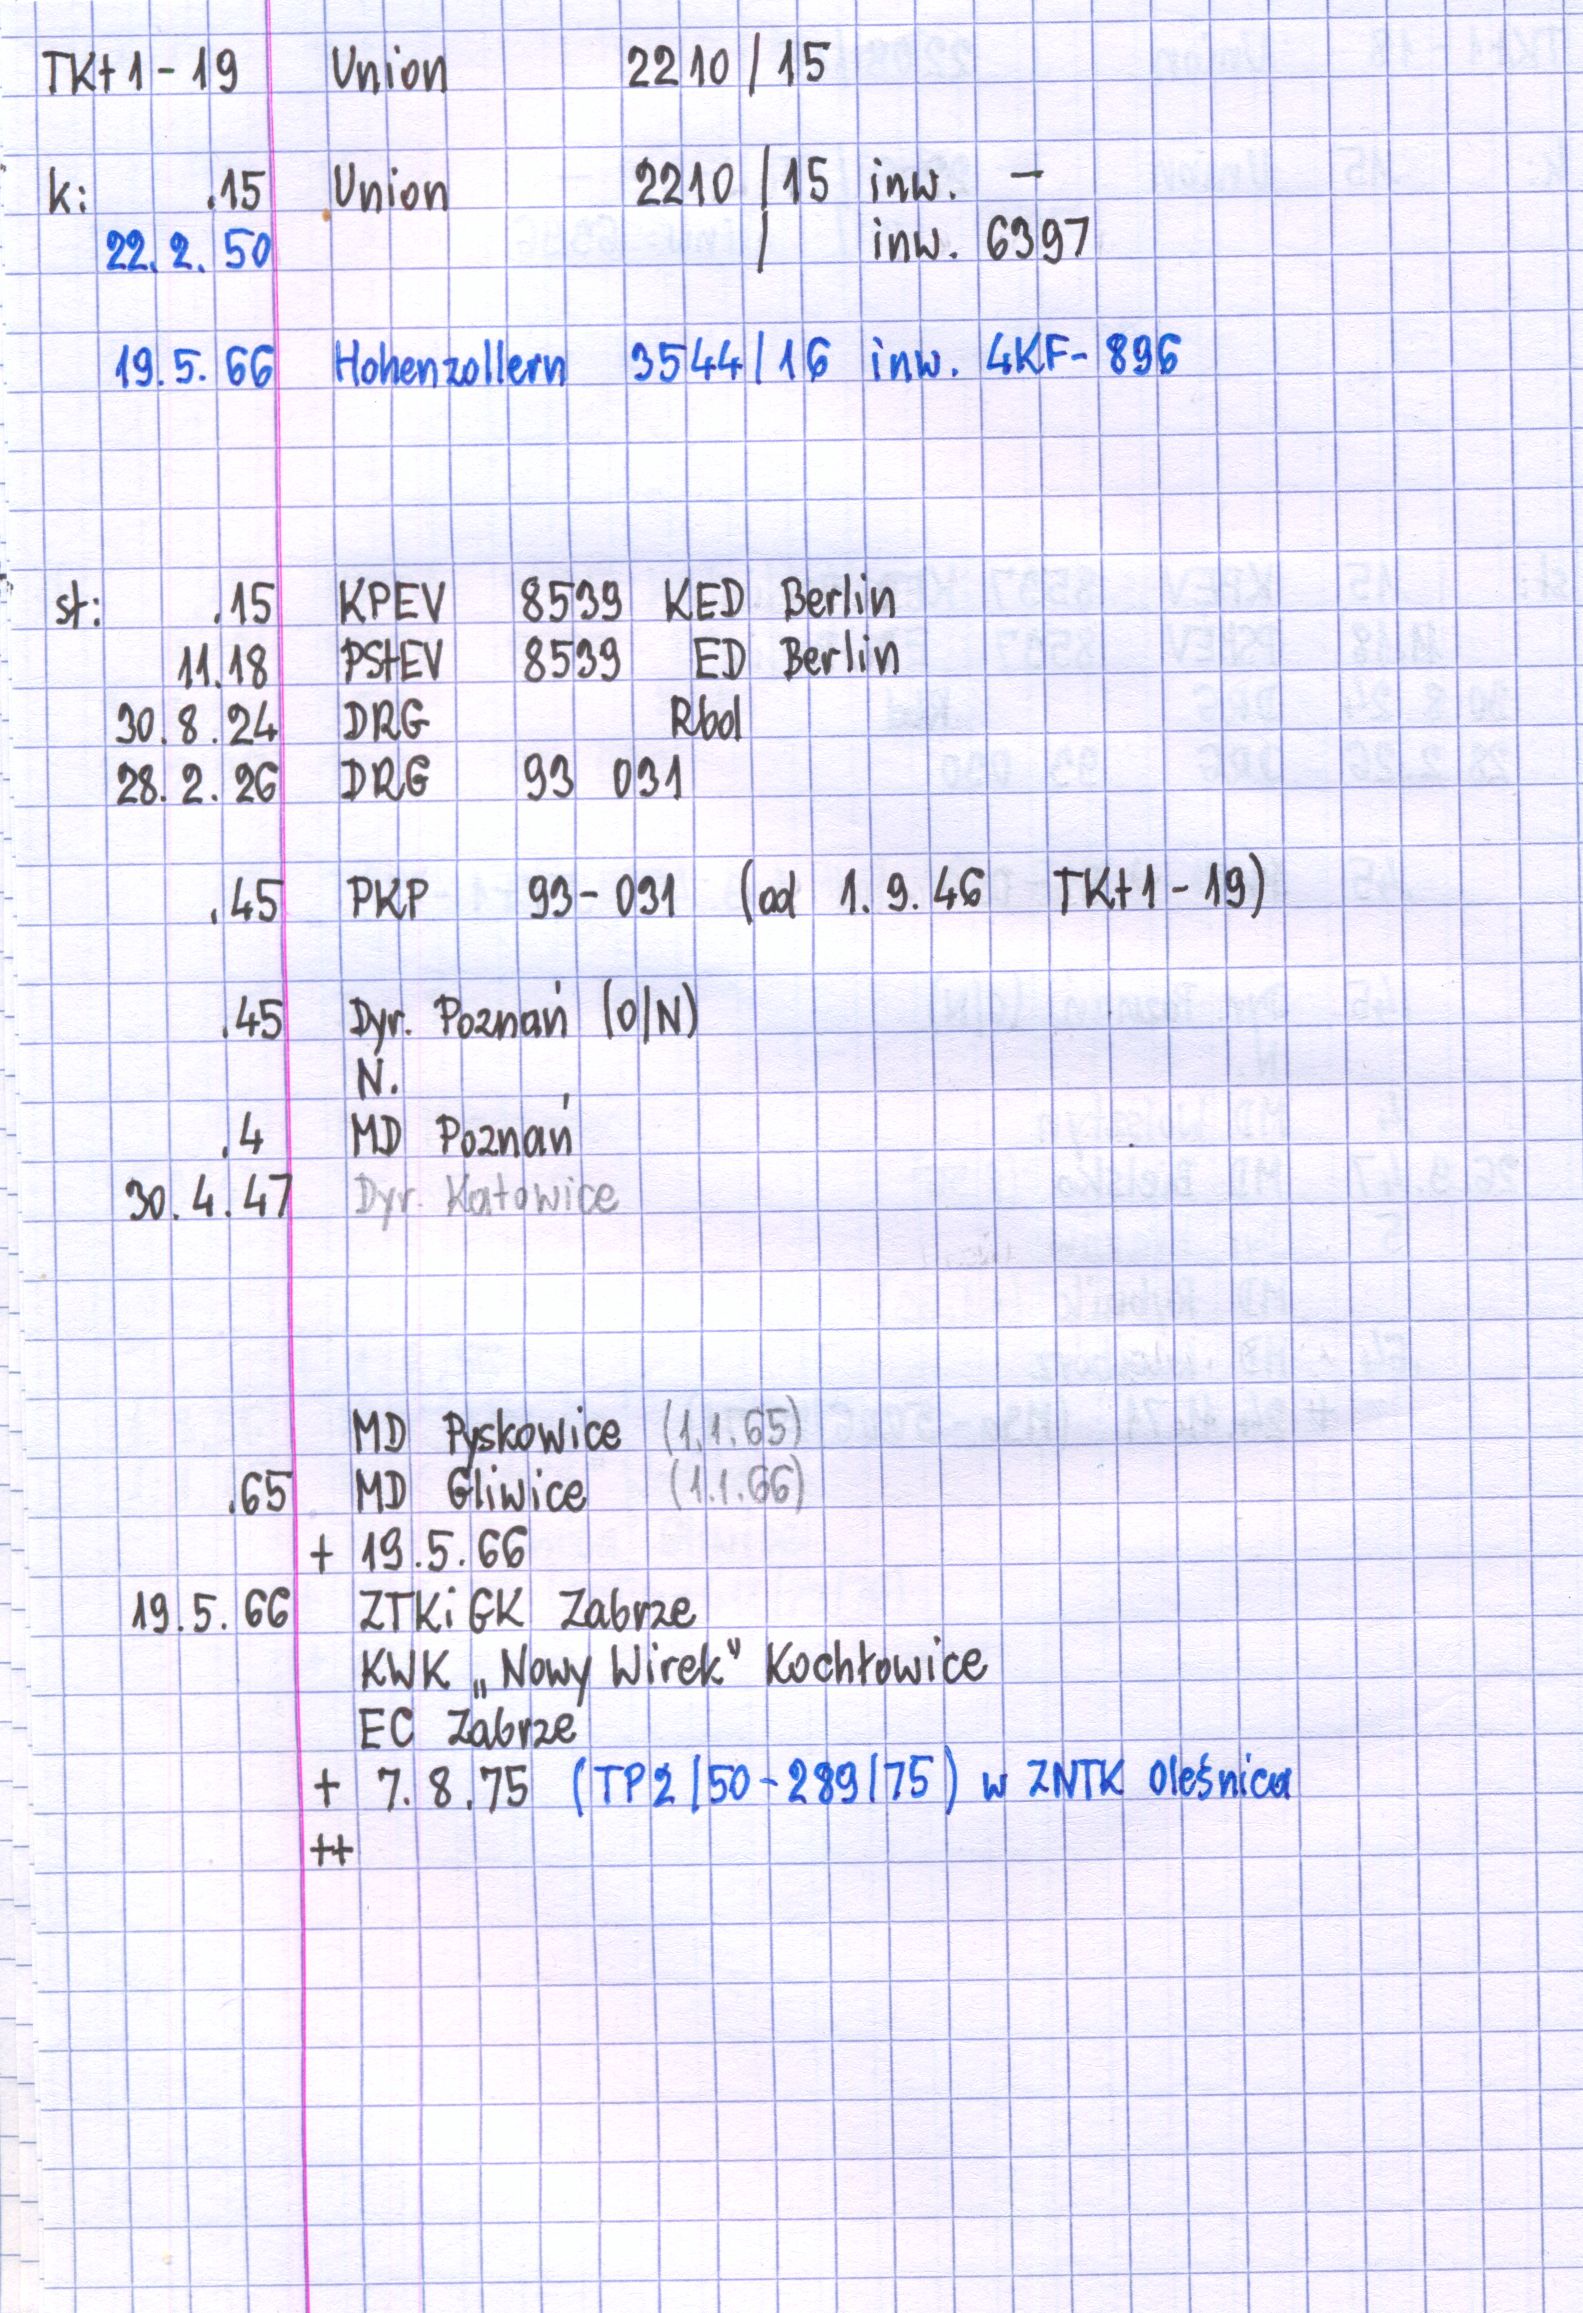 TKt1-19 Union 2210/15
k: .15 Union 2210/15 inw. -
22.2.50 / inw. 6397
19.5.66 Hohenzollern 3544/16 inw. 4KF-896
st: .15 KPEV 8539 KED Berlin
11.18 PStEV 8539 ED Berlin
30.8.24 DRG Rbd
28.2.26 DRG 93 031
.45 PKP 93-031 (od 1.9.46 TKt1-19)
.45 Dyr. Poznań (O/N)
N.
.4 MD Poznań
30.4.47 Dyr. Katowice
MD Pyskowice (1.1.65)
.65 MD Gliwice (1.1.66)
+ 19.5.66
19.5.66 ZTKiGK Zabrze
KWK „Nowy Wirek" Kochłowice
EC Zabrze
+ 7.8.75 (TP2/50-289/75) w ZNTK Oleśnica
++